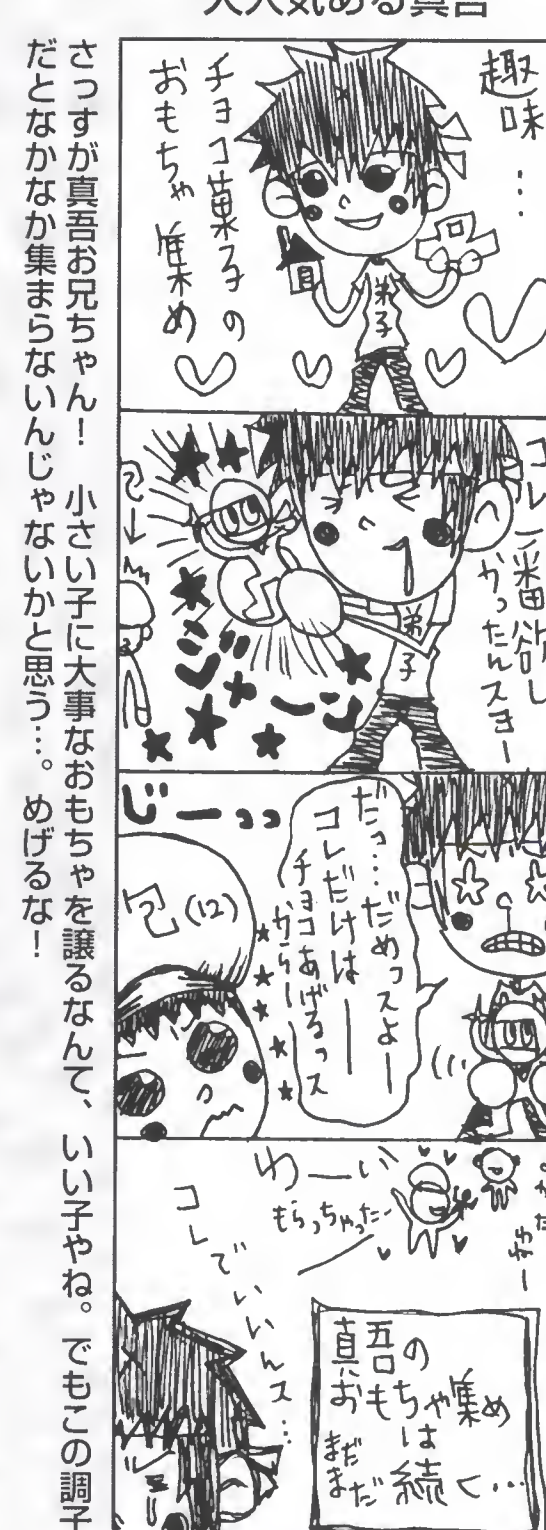 大人気ある真吾
趣味…
チョコ菓子の
おもちゃ集め
弟子
コレ一番欲し
かったんスヨー
弟子
ジャーン
じーっ
だっ…だめっスよー
コレだけはー
チョコあげるっス
からー
包(12)
わーい
もらっちゃったー
コレで
いいんス…
真吾の
おもちゃ集め
は
まだまだ続く…
さっすが真吾お兄ちゃん! 小さい子に大事なおもちゃを譲るなんて、いい子やね。でもこの調子
だとなかなか集まらないんじゃないかと思う…。めげるな!